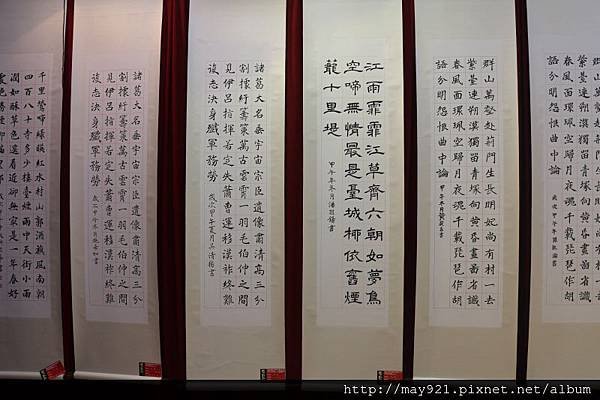 群山萬壑赴荊門生長明妃尚有村一去
紫臺連朔漠獨留青塚向黃昏畫圖省識
春風面環珮空歸月夜魂千載琵琶作胡
語分明怨恨曲中論
群山萬壑赴荊門生長明妃尚有村一去
紫臺連朔漠獨留青塚向黃昏畫圖省識
春風面環珮空歸月夜魂千載琵琶作胡
語分明怨恨曲中論
甲午年冬月
江雨霏霏江草齊六朝如夢鳥
空啼無情最是臺城柳依舊煙
籠十里堤
甲午年冬月
諸葛大名垂宇宙宗臣遺像肅清高三分
割據紆籌策萬古雲霄一羽毛伯仲之間
見伊呂指揮若定失蕭曹運移漢祚終難
復志決身殲軍務勞
歲次甲午夏月
諸葛大名垂宇宙宗臣遺像肅清高三分
割據紆籌策萬古雲霄一羽毛伯仲之間
見伊呂指揮若定失蕭曹運移漢祚終難
復志決身殲軍務勞
歲次甲午年冬月
千里鶯啼綠映紅水村山郭酒旗風南朝
四百八十寺多少樓臺煙雨中天街小雨
潤如酥草色遙看近卻無最是一年春好
處絕勝煙柳滿皇都
http://may921.pixnet.net/album